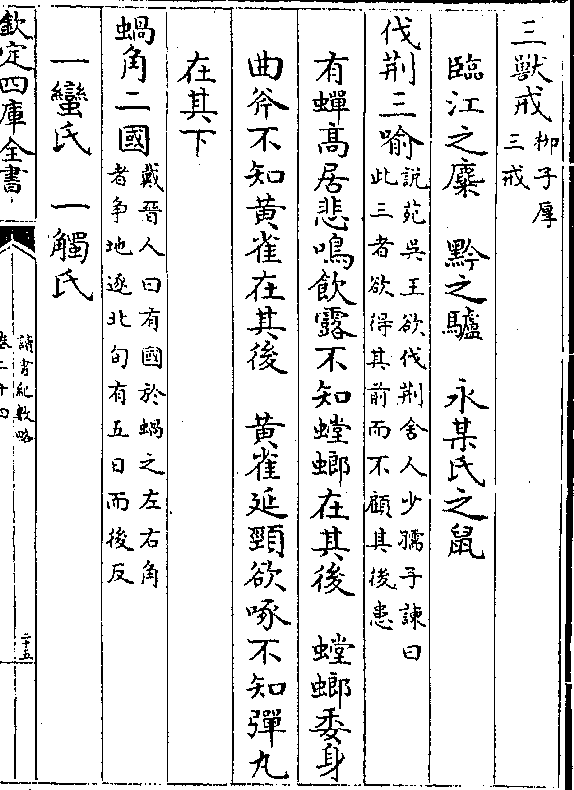 三獸戒柳子厚三戒
臨江之麋　黔之驢　永某氏之鼠
伐荆三喻説苑吳王欲伐荆舍人少孺子諫曰此三者欲得其前而不顧其後患
有蟬高居悲鳴飲露不知螳螂在其後　螳螂委身
曲斧不知黄雀在其後　黄雀延頸欲啄不知彈丸
在其下
蝸角二國戴晉人曰有國於蝸之左右角者争地逐北旬有五日而後反
一蠻氏　一觸氏
欽定四庫全書
讀書紀數略
卷二十四
二十五